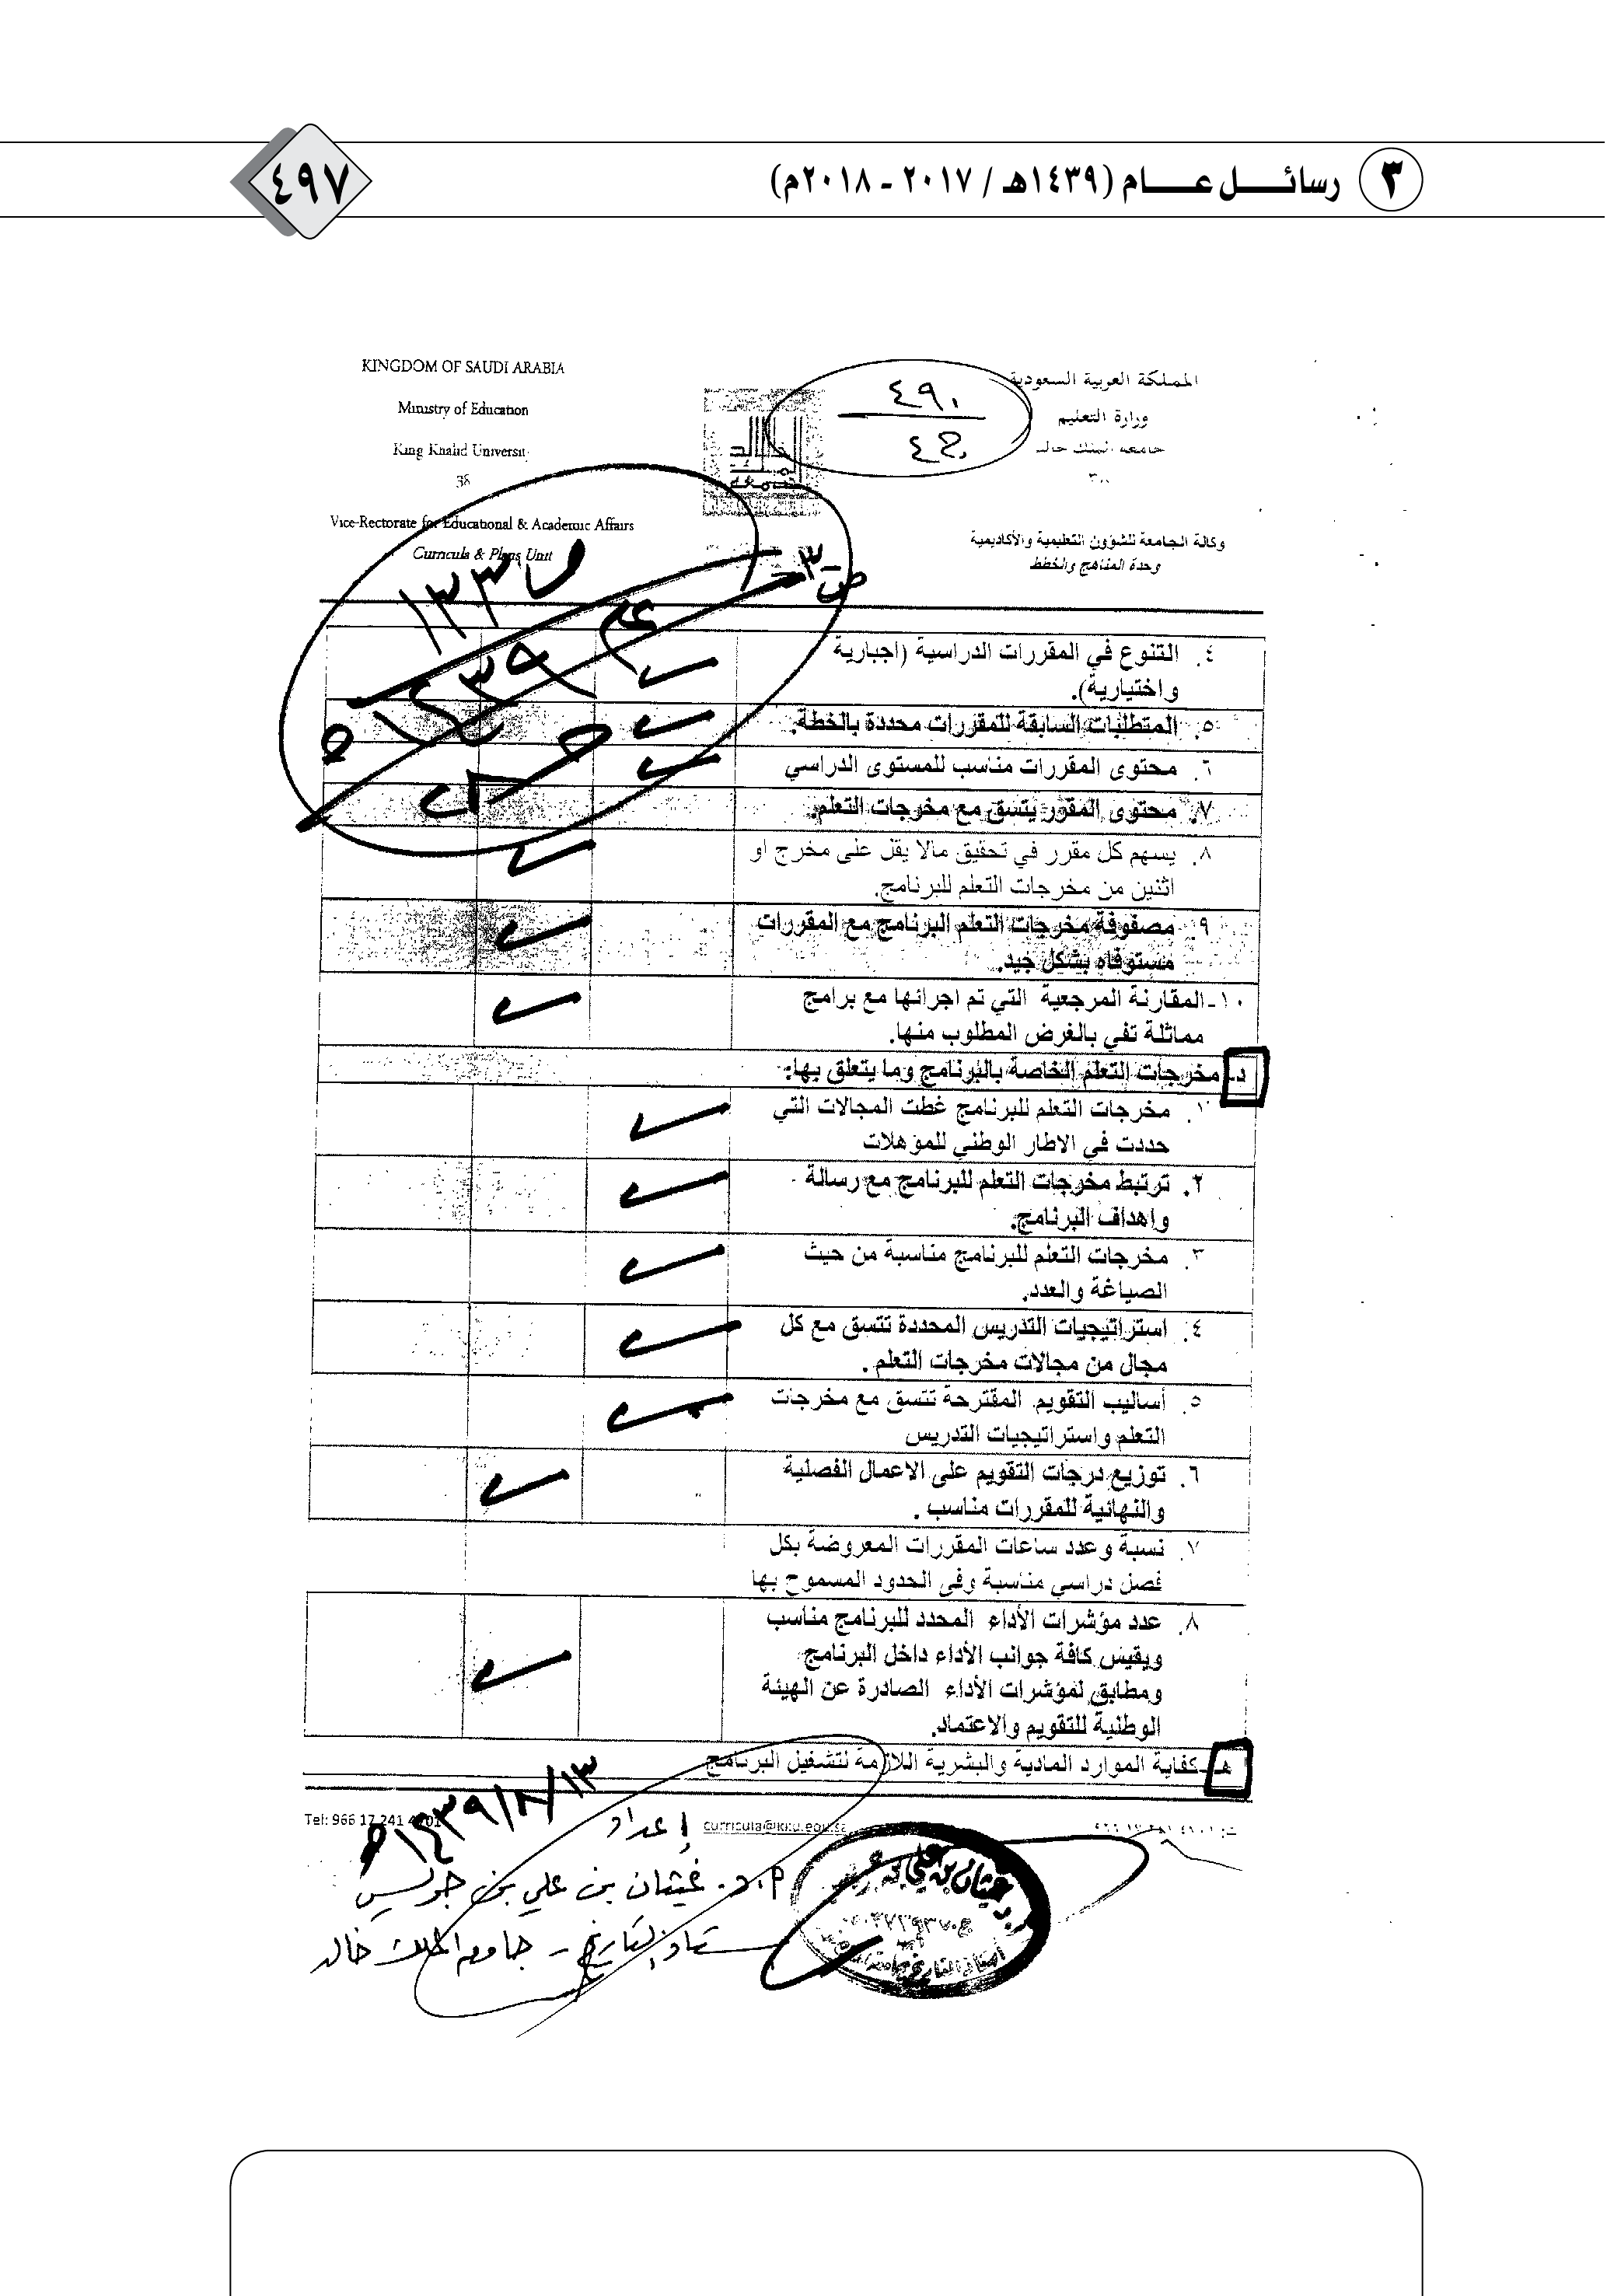 ٣ رسائــــل عــــام (١٤٣٩هـ / ٢٠١٧ - ٢٠١٨م)
٤٩٧
KINGDOM OF SAUDI ARABIA
Ministry of Education
King Khalid University
38
Vice-Rectorate for Educational & Academic Affairs
Curricula & Plans Unit
٤٩٠
المملكة العربية السعودية
وزارة التعليم
وكالة الجامعة للشؤون التعليمية والأكاديمية
وحدة المناهج والخطط
ص-٣-
٤. التنوع في المقررات الدراسية (اجبارية
واختيارية).
٥. المتطلبات السابقة للمقررات محددة بالخطة.
٦. محتوى المقررات مناسب للمستوى الدراسي
٧. محتوى المقرر يتسق مع مخرجات التعلم.
٨. يسهم كل مقرر في تحقيق مالا يقل على مخرج او
اثنين من مخرجات التعلم للبرنامج.
٩. مصفوفة مخرجات التعلم البرنامج مع المقررات
مستوفاه بشكل جيد.
١٠-المقارنة المرجعية التي تم اجرائها مع برامج
مماثلة تفي بالغرض المطلوب منها.
د- مخرجات التعلم الخاصة بالبرنامج وما يتعلق بها:
١. مخرجات التعلم للبرنامج غطت المجالات التي
حددت في الاطار الوطني للمؤهلات
٢. ترتبط مخرجات التعلم للبرنامج مع رسالة
واهداف البرنامج.
٣. مخرجات التعلم للبرنامج مناسبة من حيث
الصياغة والعدد.
٤. استراتيجيات التدريس المحددة تتسق مع كل
مجال من مجالات مخرجات التعلم .
٥. أساليب التقويم المقترحة تتسق مع مخرجات
التعلم واستراتيجيات التدريس
٦. توزيع درجات التقويم على الاعمال الفصلية
والنهائية للمقررات مناسب .
٧. نسبة وعدد ساعات المقررات المعروضة بكل
فصل دراسي مناسبة وفى الحدود المسموح بها
٨. عدد مؤشرات الأداء المحدد للبرنامج مناسب
ويقيس كافة جوانب الأداء داخل البرنامج
ومطابق لمؤشرات الأداء الصادرة عن الهيئة
الوطنية للتقويم والاعتماد.
هـ-كفاية الموارد المادية والبشرية اللازمة لتشغيل البرنامج
Tel: 966 17 241
curricula@kku.edu.sa
١٤٣٩/٨/١٣هـ
إعداد
أ.د. غيثان بن علي بن جريس
أستاذ التاريخ - جامعة الملك خالد